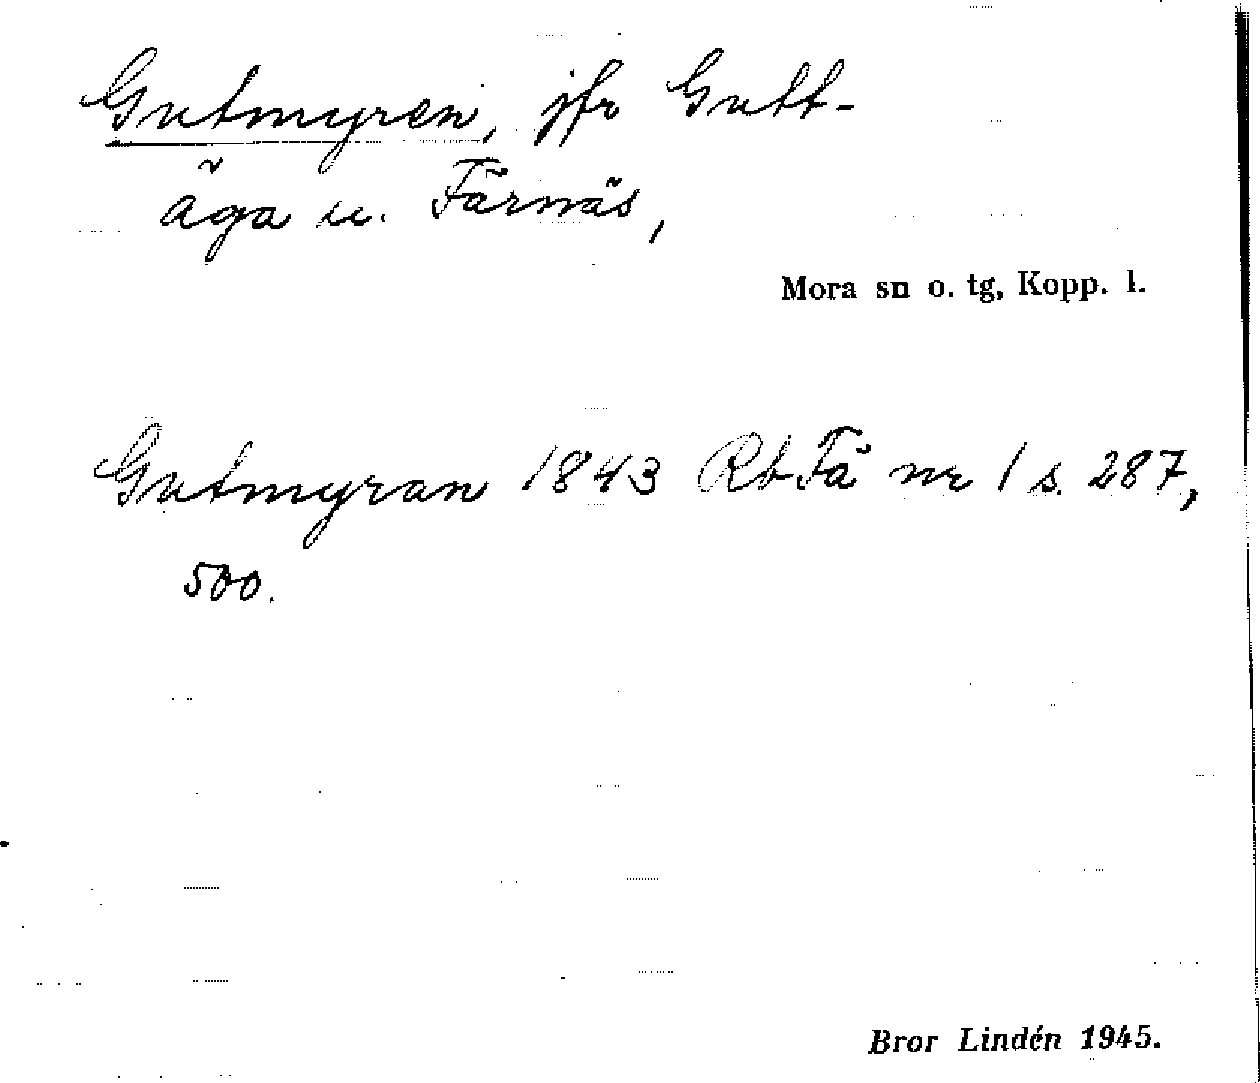 Gutmyren, jfr Gutt-
äga u. Färnäs,
Mora sn o. tg, Kopp. l.
Gutmyran 1843 RbFä nr 1 s. 287,
500.
Bror Lindén 1945.